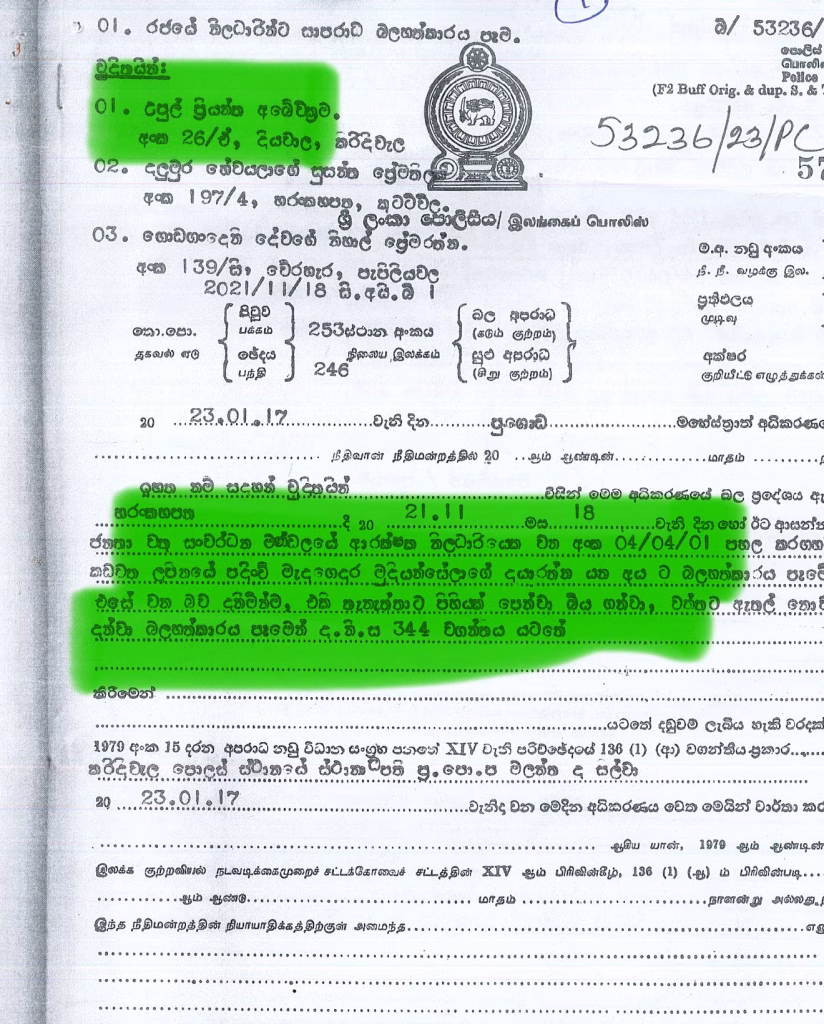 01. රජයේ නිලධාරින්ට සාපරාධ බලහත්කාරය පෑම.
බ/ 53236/
පොලිස්
Police
(F2 Buff Orig. & dup. S. &
චුදිතයින්:
01. උපුල් ප්‍රියන්ත අබේවික්‍රම.
අංක 26/ඒ, දියවාල, කිරිදිවැල
53236/23/PC
57
02. දලුමුර හේවයලාගේ සුසන්ත ප්‍රේමතිලක
අංක 197/4, හරංකහපත, කුට්ටිවිල.
ශ්‍රී ලංකා පොලීසිය/ இலங்கைப் பொலிஸ்
03. ගොඩගාදෙනි දේවගේ නිහාල් ප්‍රේමරත්න.
ම.අ. නඩු අංකය
අංක 139/සී, වේරහැර, පැපිලියවල
நீ. நீ. வழக்கு இல.
2021/11/18 සී.අයි.බී 1
ප්‍රතිඵලය
முடிவு
තො.පො. පිටුව 253 ස්ථාන අංකය බල අපරාධ
தகவல் ஏடு பக்கம் நிலைய இலக்கம் (கடும் குற்றம்)
ඡේදය 246 සුළු අපරාධ අක්ෂර
பந்தி (சிறு குற்றம்) குறியீட்டு எழுத்துக்கள்
20 23.01.17 වැනි දින පුගොඩ මහේස්ත්‍රාත් අධිකරණ
நீதிவான் நீதிமன்றத்தில் 20 ஆம் ஆண்டின் மாதம்
ඉහත නම් සදහන් චුදිතයින් විසින් මෙම අධිකරණයේ බල ප්‍රදේශය
හරංකහපත දී 20 21.11 මස 18 වැනි දින හෝ ඊට ආසන්න
ජනතා වතු සංවර්ධන මණ්ඩලයේ ආරක්ෂක නිලධාරියෙක් වන අංක 04/04/01 පහල කරගහ
කඩවත ලිපිනයේ පදිංචි මැදගෙදර මුදියන්සේලාගේ දයාරත්න යන අය ට බලහත්කාරය පෑමේ
එසේ වන බව දනිමින්ම, එකි තැනැත්තාට පිහියක් පෙන්වා බිය ගන්වා, වත්තට ඇතුල්
දන්වා බලහත්කාරය පෑමෙන් ද.නි.ස 344 වගන්තිය යටතේ
කිරීමෙන්
යටතේ දඬුවම් ලැබිය හැකි වරදක්
1979 අංක 15 දරන අපරාධ නඩු විධාන සංග්‍රහ පනතේ XIV වැනි පරිච්ඡේදයේ 136 (1) (ආ) වගන්තිය ප්‍රකාර
කිරිදිවැල පොලිස් ස්ථානයේ ස්ථානාධිපති ප්‍ර.පො.ප මලන්ත ද සිල්වා
20 23.01.17 වැනිදා වන මෙදින අධිකරණය වෙත මෙයින් වාර්තා කර
ஆகிய யான், 1979 ஆம் ஆண்டின்
இலக்க குற்றவியல் நடவடிக்கைமுறைச் சட்டக்கோவைச் சட்டத்தின் XIV ஆம் பிரிவின்கீழ், 136 (1) (ஆ) ம் பிரிவின்படி
ஆம் ஆண்டு மாதம் நாளன்று அல்லது
இந்த நீதிமன்றத்தின் நியாயாதிக்கத்திற்குள் அமைந்த